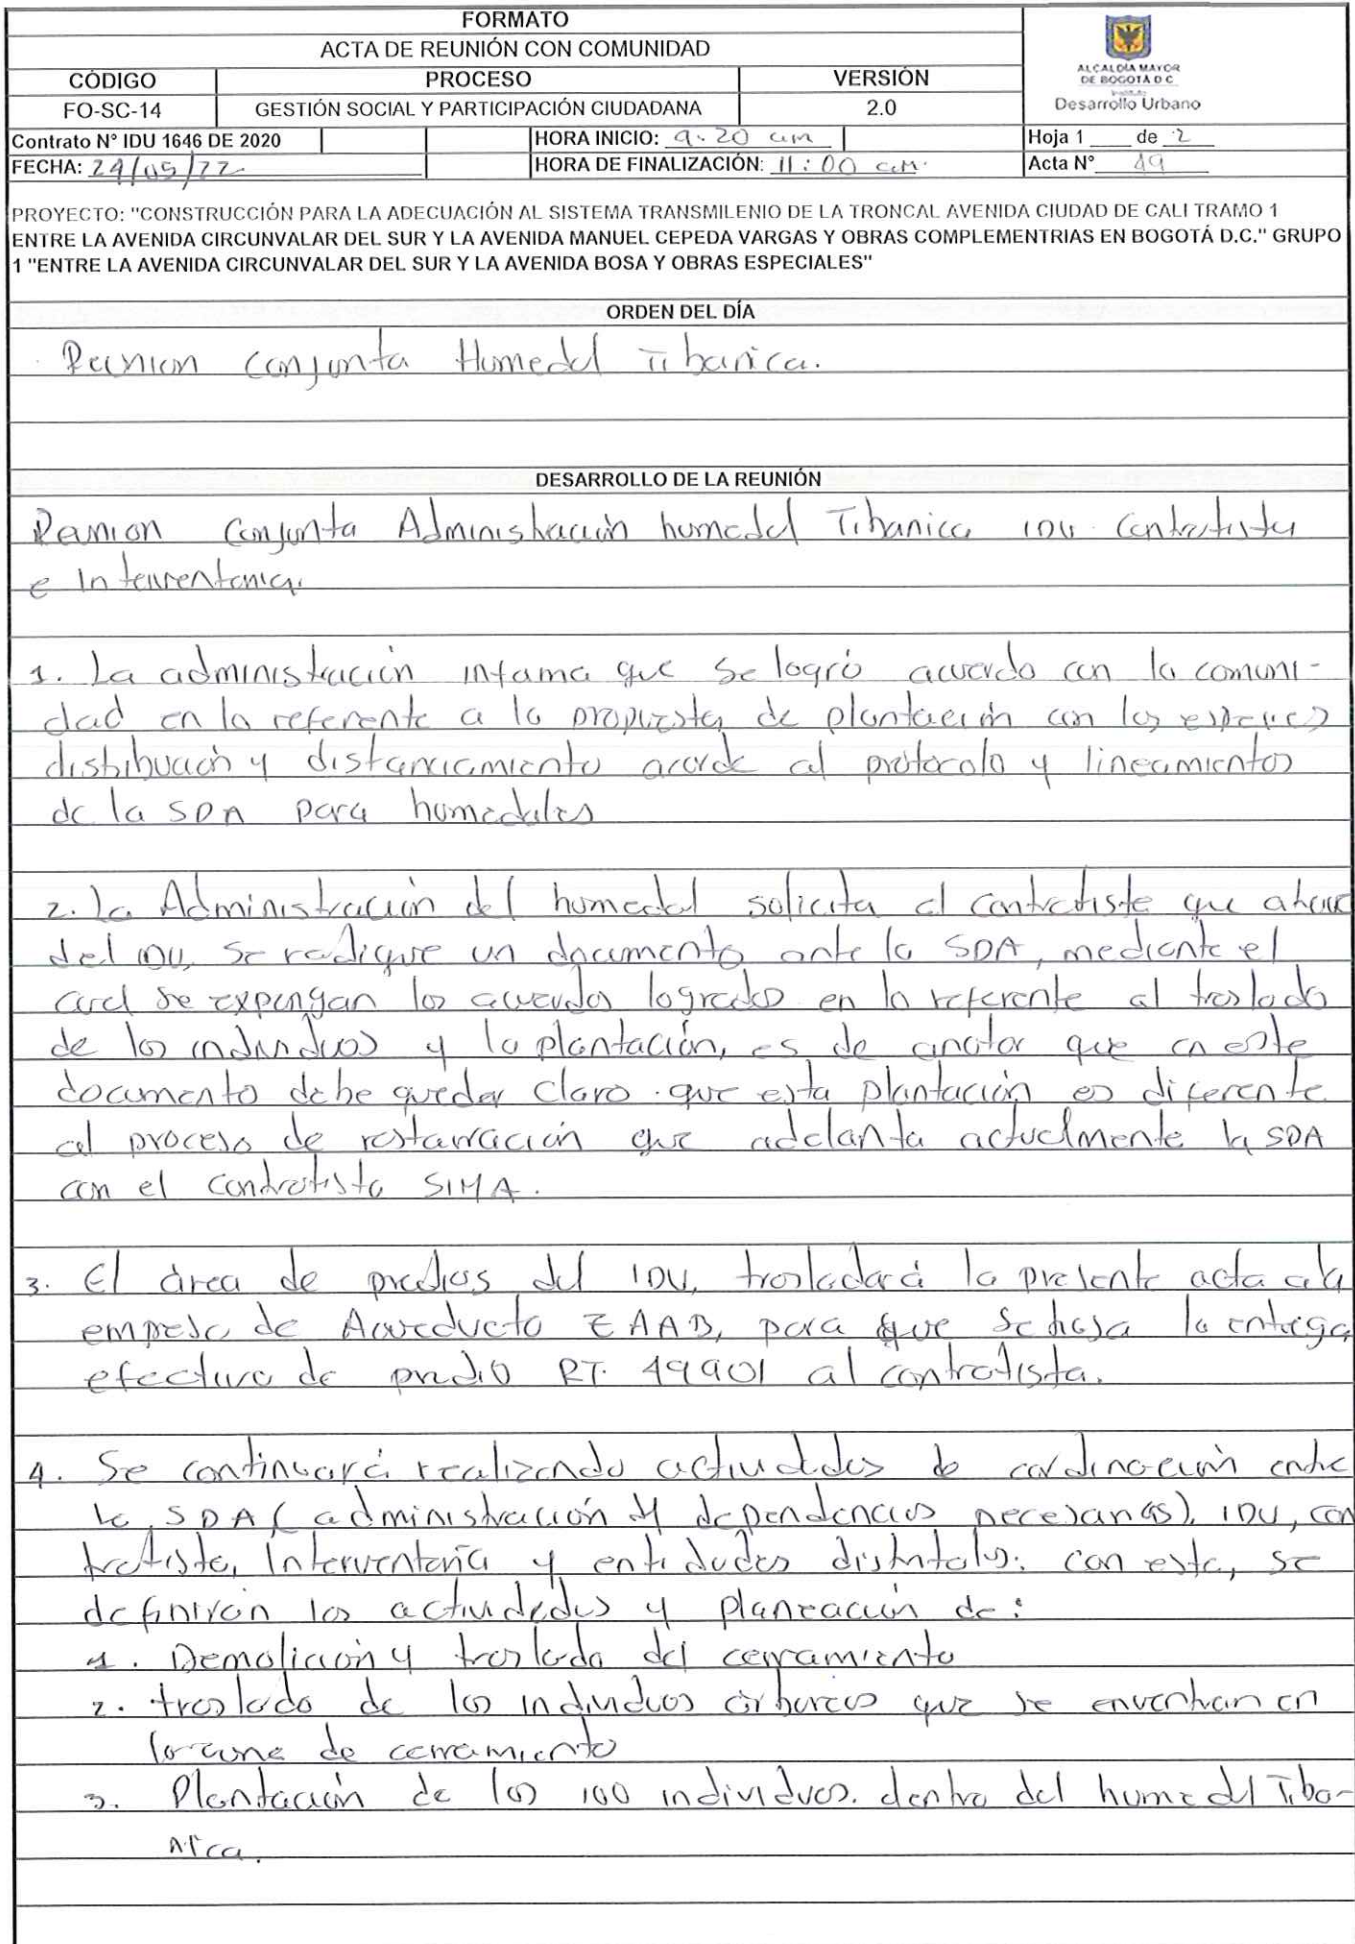 FORMATO
ACTA DE REUNIÓN CON COMUNIDAD
CÓDIGO PROCESO VERSIÓN
FO-SC-14 GESTIÓN SOCIAL Y PARTICIPACIÓN CIUDADANA 2.0
ALCALDÍA MAYOR
DE BOGOTÁ D.C.
Instituto
Desarrollo Urbano
Contrato N° IDU 1646 DE 2020 HORA INICIO: 9:20 am Hoja 1 de 2
FECHA: 24/05/22 HORA DE FINALIZACIÓN: 11:00 am. Acta N° 49
PROYECTO: "CONSTRUCCIÓN PARA LA ADECUACIÓN AL SISTEMA TRANSMILENIO DE LA TRONCAL AVENIDA CIUDAD DE CALI TRAMO 1
ENTRE LA AVENIDA CIRCUNVALAR DEL SUR Y LA AVENIDA MANUEL CEPEDA VARGAS Y OBRAS COMPLEMENTRIAS EN BOGOTÁ D.C." GRUPO
1 "ENTRE LA AVENIDA CIRCUNVALAR DEL SUR Y LA AVENIDA BOSA Y OBRAS ESPECIALES"
ORDEN DEL DÍA
Reunion Conjunta Humedal Tibanica.
DESARROLLO DE LA REUNIÓN
Reunion Conjunta Administración humedal Tibanica IDU Contratista
e Interventoria.
1. La administración informa que se logró acuerdo con la comuni-
dad en lo referente a la propuesta de plantación con las especies
distribución y distanciamiento acorde al protocolo y lineamientos
de la SDA para humedales
2. La Administración del humedal solicita al contratista que
del IDU, se radique un documento ante la SDA, mediante el
cual se expongan los acuerdos logrados en lo referente al traslado
de los individuos y la plantación, es de anotar que en este
documento debe quedar claro que esta plantación es diferente
al proceso de restauración que adelanta actualmente la SDA
con el contratista SIMA.
3. El área de predios del IDU, trasladará la presente acta a la
empresa de Acueducto EAAB, para que se haga la entrega
efectiva de predio RT. 49901 al contratista.
4. Se continuará realizando actividades de cordinación entre
la SDA (administración y dependencias necesarias), IDU, con
tratista, Interventoría y entidades distritales. con esto, se
definiran las actividades y planeación de:
1. Demolición y traslado del cerramiento
2. traslado de los individuos arboreos que se encuentran en
la zona de cerramiento
3. Plantación de los 100 individuos. dentro del humedal Tiba-
nica.